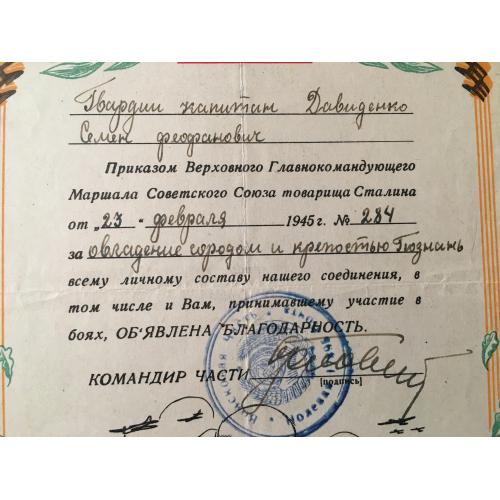 Гвардии капитан Давиденко
Семен Феофанович
Приказом Верховного Главнокомандующего
Маршала Советского Союза товарища Сталина
от „23 - февраля 1945 г. № 284
за овладение городом и крепостью Познань
всему личному составу нашего соединения, в
том числе и Вам, принимавшему участие в
боях, ОБ'ЯВЛЕНА БЛАГОДАРНОСТЬ.
КОМАНДИР ЧАСТИ
[подпись]